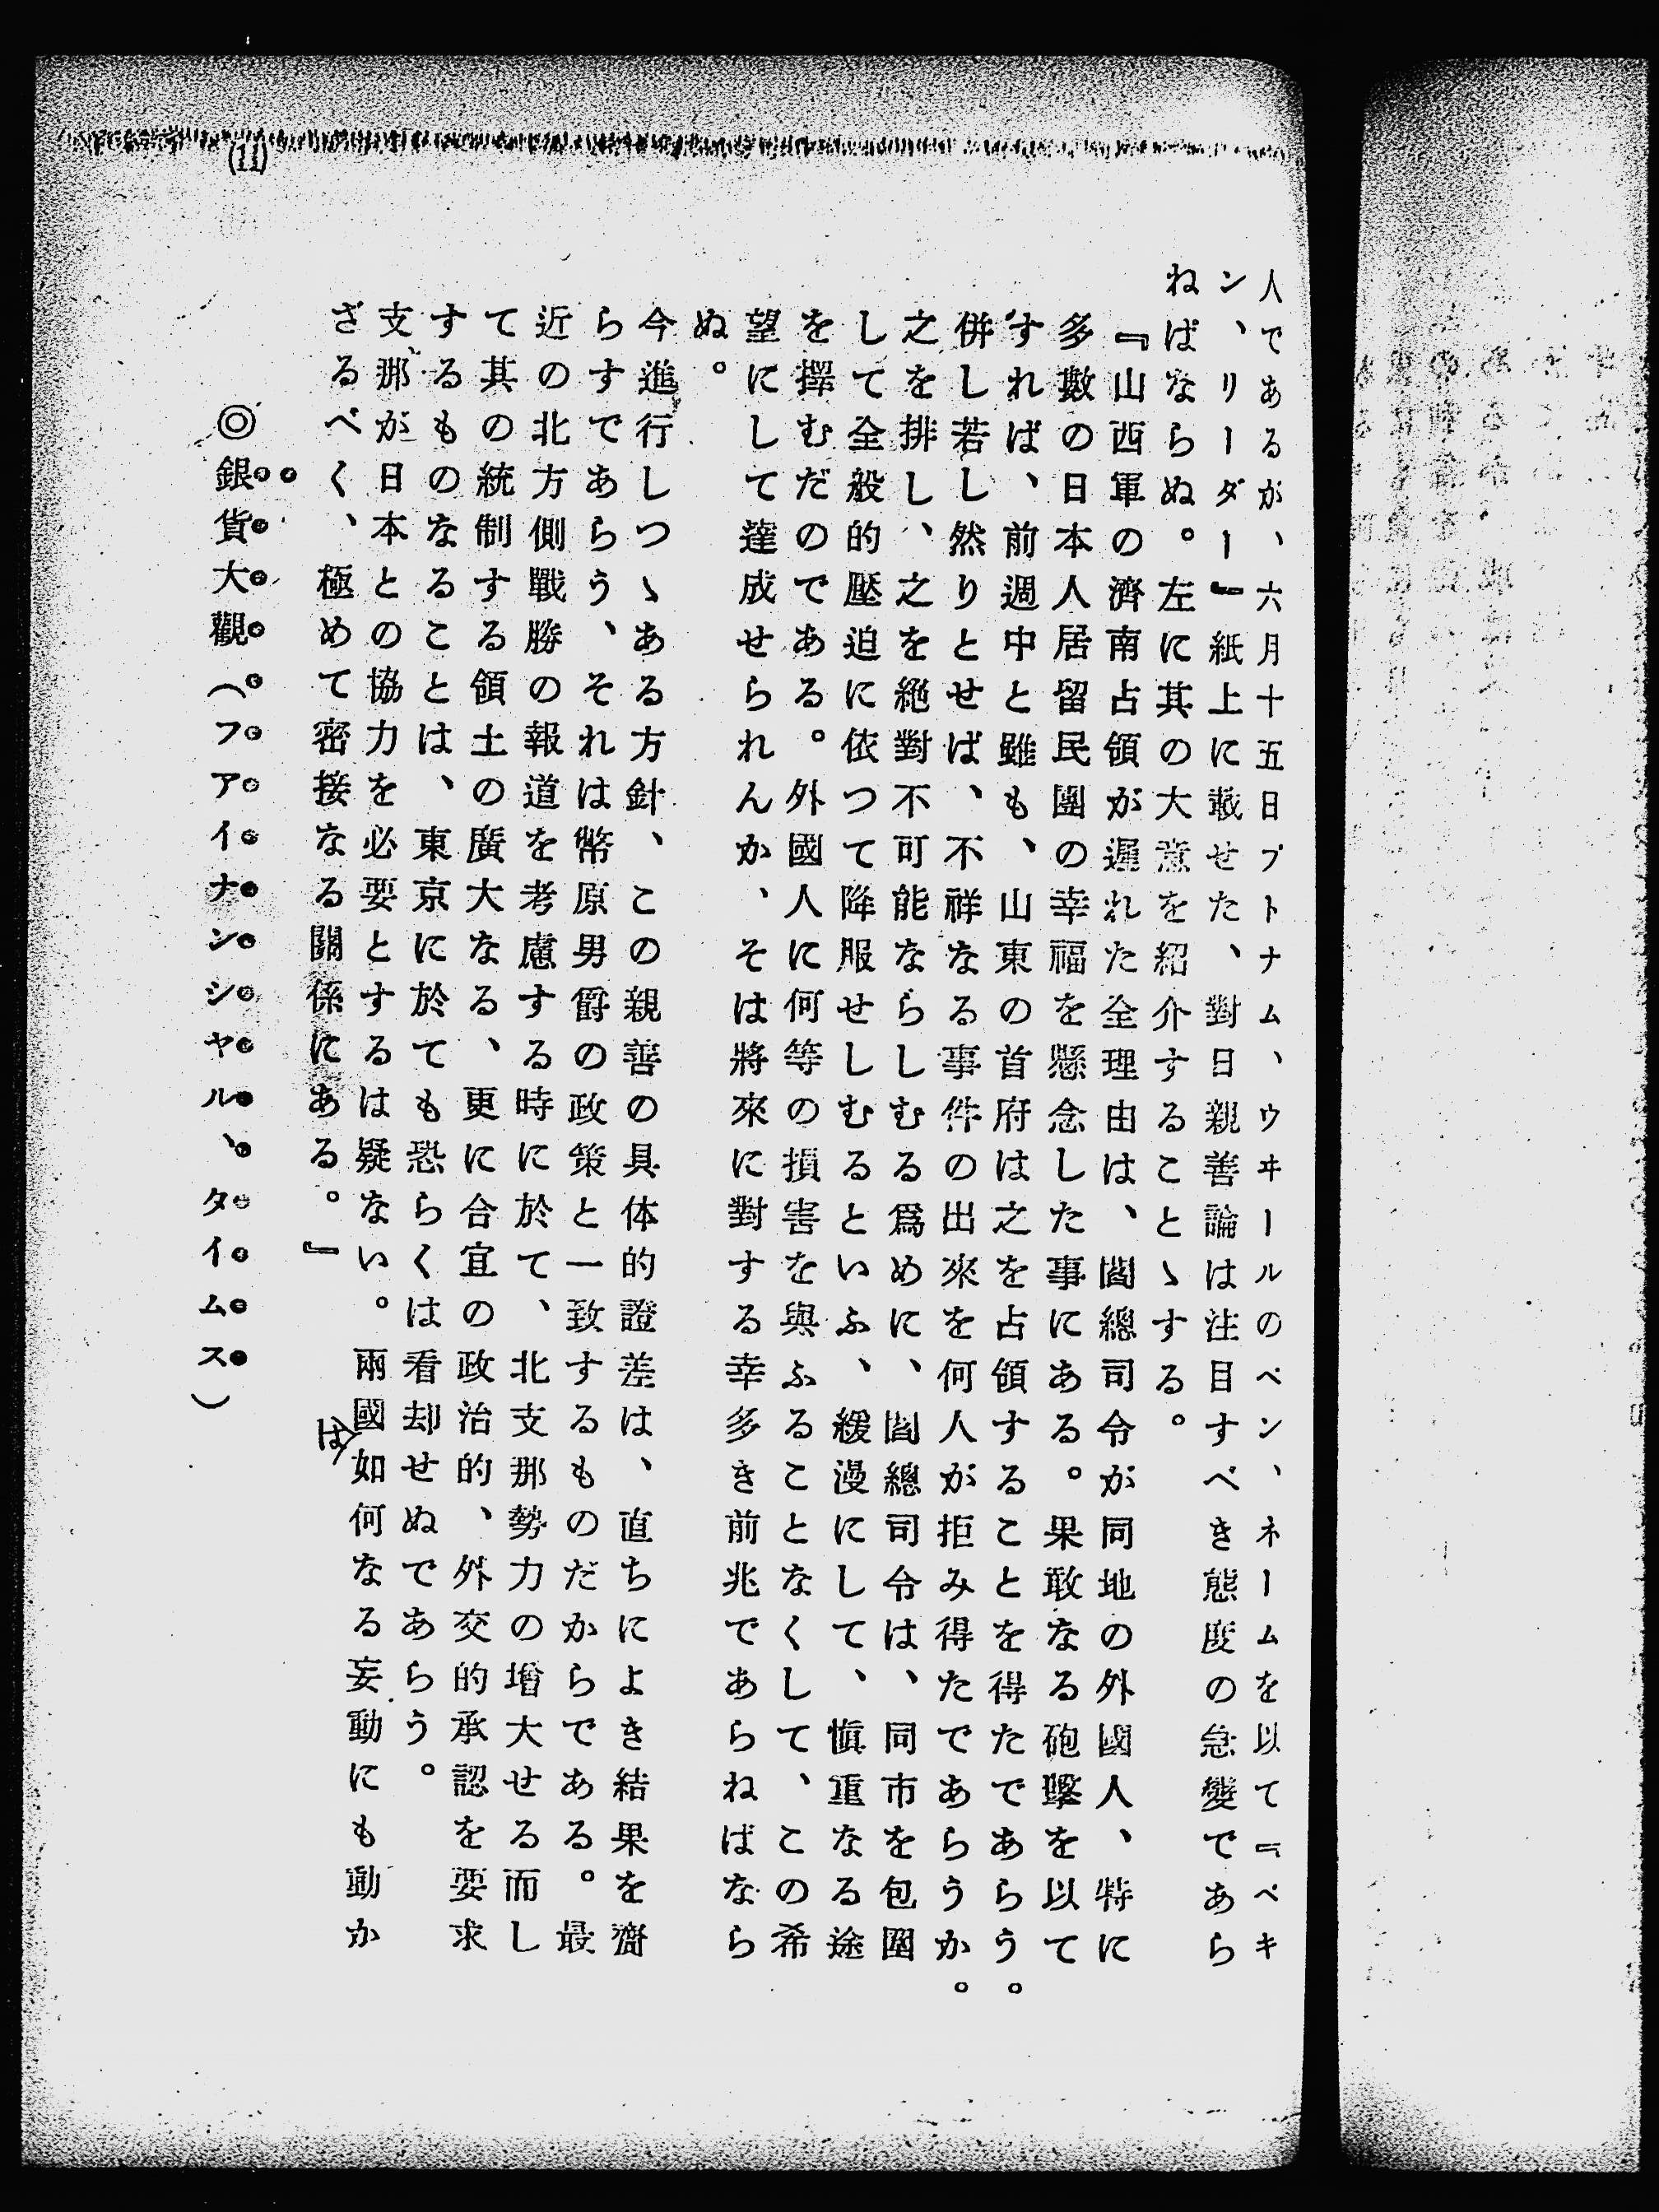 (11)
人であるが、六月十五日プトナム、ウヰールのペン、ネームを以て『ペキ
ン、リーダー』紙上に載せた、對日親善論は注目すべき態度の急變であら
ねばならぬ。左に其の大意を紹介することゝする。
『山西軍の濟南占領が遲れた全理由は、閻總司令が同地の外國人、特に
多數の日本人居留民團の幸福を懸念した事にある。果敢なる砲擊を以て
すれば、前週中と雖も、山東の首府は之を占領することを得たであらう。
併し若し然りとせば、不祥なる事件の出來を何人が拒み得たであらうか。
之を排し、之を絶對不可能ならしむる爲めに、閻總司令は、同市を包圍
して全般的壓迫に依つて降服せしむるといふ、緩漫にして、愼重なる途
を擇むだのである。外國人に何等の損害を與ふることなくして、この希
望にして達成せられんか、そは將來に對する幸多き前兆であらねばなら
ぬ。
今進行しつゝある方針、この親善の具体的證差は、直ちによき結果を齎
らすであらう、それは幣原男爵の政策と一致するものだからである。最
近の北方側戰勝の報道を考慮する時に於て、北支那勢力の增大せる而し
て其の統制する領土の廣大なる、更に合宜の政治的、外交的承認を要求
するものなることは、東京に於ても恐らくは看却せぬであらう。
支那が日本との協力を必要とするは疑ない。兩國は如何なる妄動にも動か
ざるべく、極めて密接なる關係にある。』
◎銀貨大觀（フアイナンシヤル、タイムス）